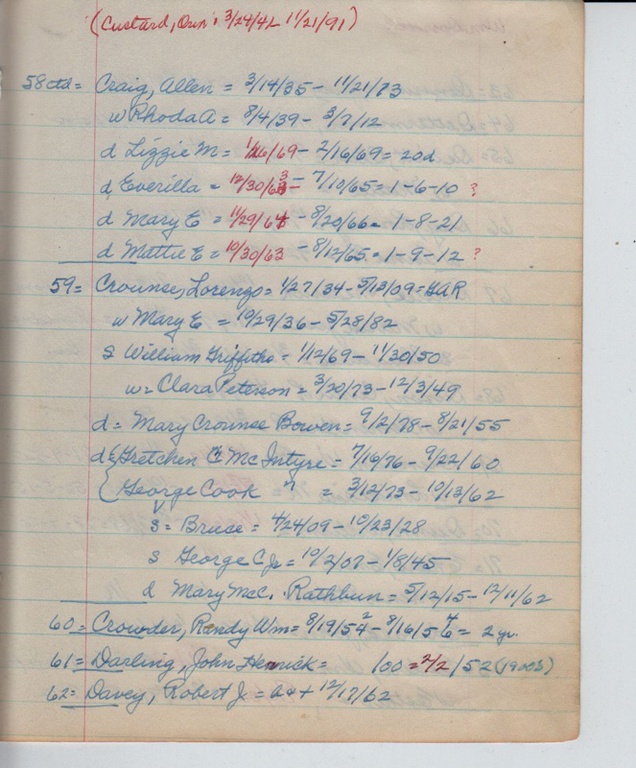 (Custard, Orin: 3/24/41 11/21/91)
58ctd = Craig, Allen = 3/14/35 - 11/21/73
w Rhoda A = 8/4/39 - 3/7/12
d Lizzie M = 1/26/69 - 2/16/69 = 20d
d Everilla = 12/30/63 - 7/10/65 = 1-6-10 ?
d Mary E = 11/29/64 - 8/20/66 = 1-8-21
d Mattie E = 10/30/63 - 8/12/65 = 1-9-12 ?
59 = Crounse, Lorenzo = 1/27/34 - 5/13/09 = GAR
w Mary E = 10/29/36 - 5/28/82
s William Griffiths = 1/12/69 - 11/30/50
w = Clara Peterson = 3/20/73 - 12/3/49
d = Mary Crounse Bowen = 9/2/78 - 8/21/55
d { Gretchen C McIntyre = 7/16/76 - 9/22/60
{ George Cook " = 3/12/73 - 10/13/62
s = Bruce = 4/24/09 - 10/23/28
s George C Jr = 10/2/07 - 1/8/45
d Mary McC. Rathbun = 5/12/15 - 12/11/62
60 = Crowder, Randy Wm = 8/19/542 - 8/16/56 = 2 yr.
61 = Darling, John Henrick = 100 = 2/2/52 (1900s)
62 = Davey, Robert J = 64 + 12/17/62